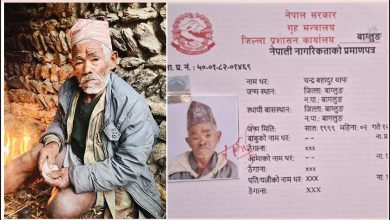 नेपाल सरकार
गृह मन्त्रालय
जिल्ला प्रशासन कार्यालय, बाग्लुङ
नेपाली नागरिकताको प्रमाणपत्र
प्र. नं. : ५०-०१-८२-०१४६९
नाम थर: चन्द्र बहादुर थापा
जन्म स्थान: जिल्ला: बाग्लुङ
न.पा.: बागलुङ
स्थायी बासस्थान: जिल्ला: बाग्लुङ
न.पा.: बागलुङ
जन्म मिति: साल: १९९९ महिना: ०२ गते
बाबुको नाम थर: -- ना.प्र
ठेगाना: xxx
आमाको नाम थर: -- ना.
ठेगाना: xxx
पति/पत्नीको नाम थर: XXX ना
ठेगाना: XXX